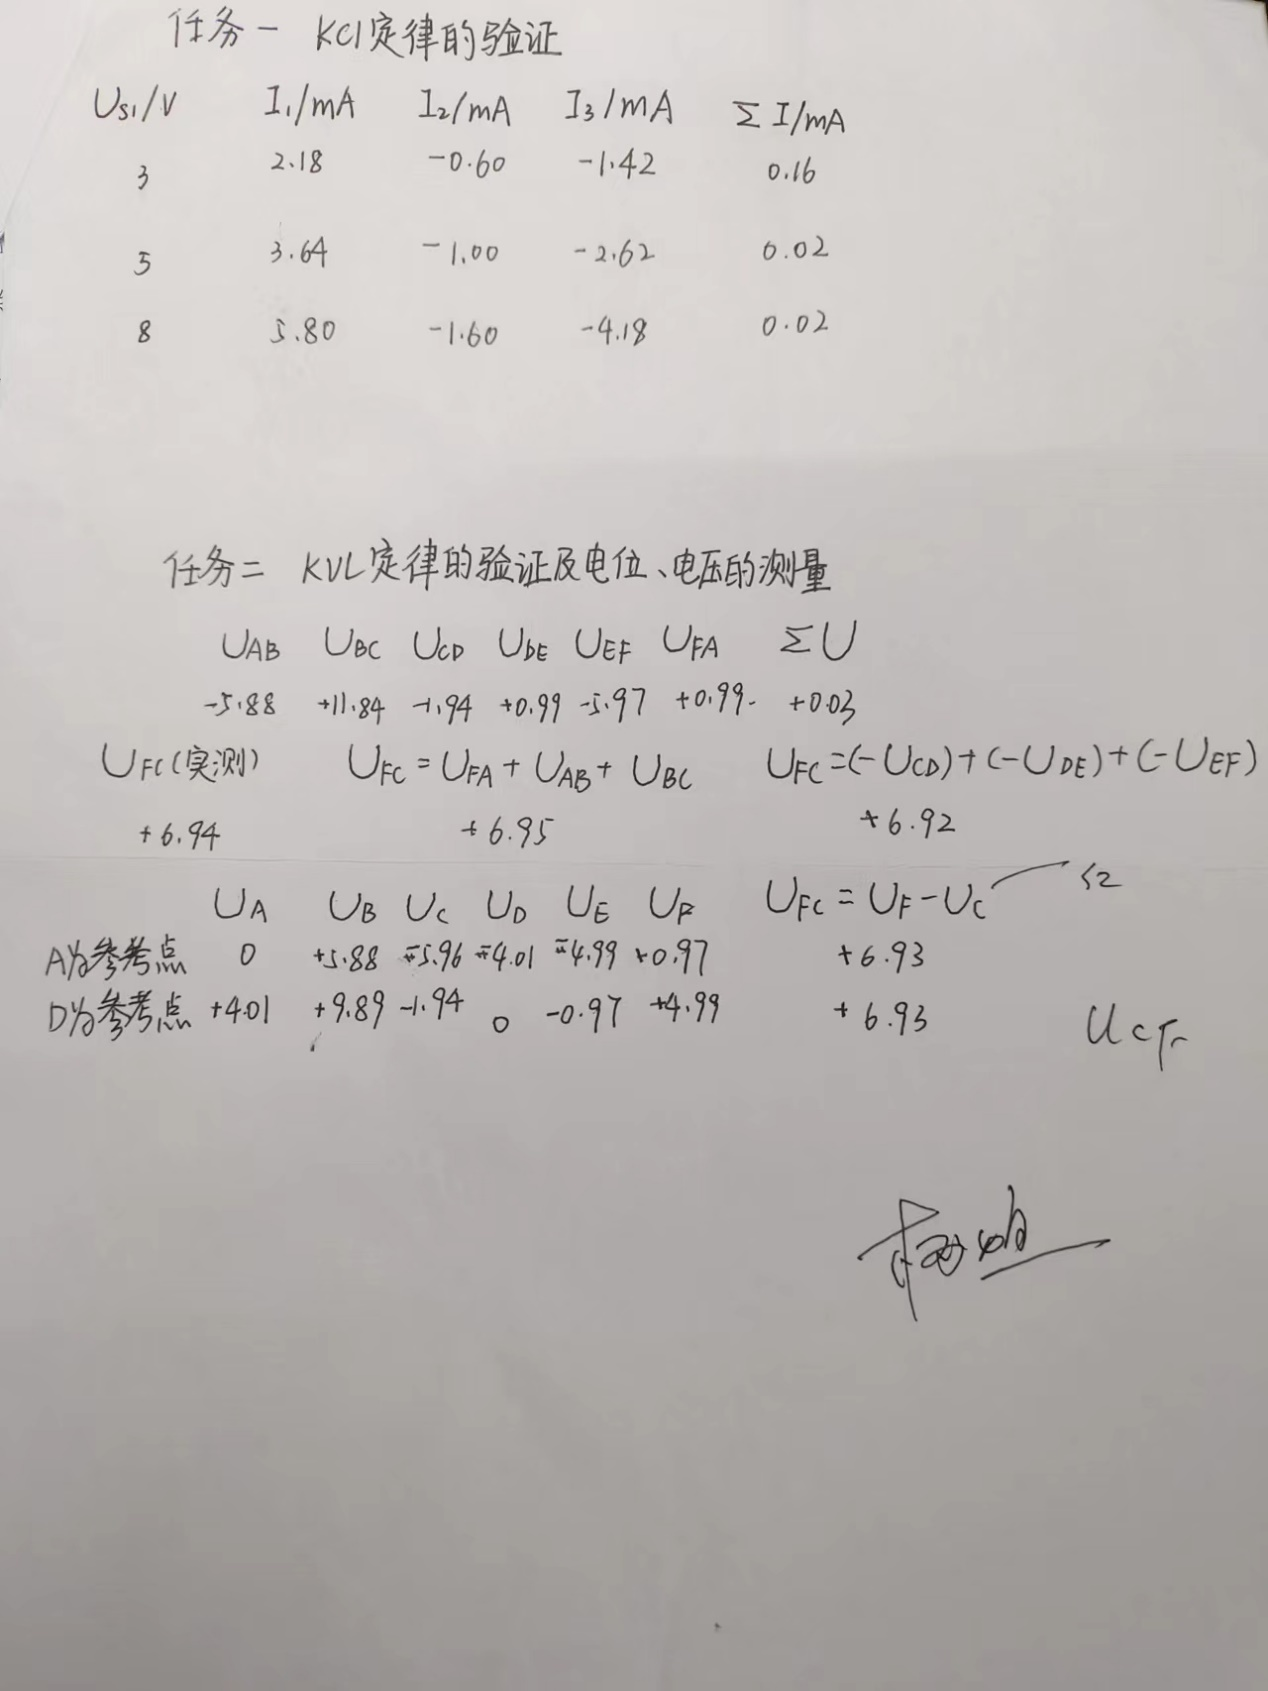 任务一 KCl定律的验证
Us1/V I1/mA I2/mA I3/mA ΣI/mA
3 2.18 -0.60 -1.42 0.16
5 3.64 -1.00 -2.62 0.02
8 5.80 -1.60 -4.18 0.02
任务二 KVL定律的验证及电位、电压的测量
UAB UBC UCD UDE UEF UFA ΣU
-5.88 +11.84 -1.94 +0.99 -5.97 +0.99 +0.03
UFC(实测) UFC=UFA+UAB+UBC UFC=(-UCD)+(-UDE)+(-UEF)
+6.94 +6.95 +6.92
UA UB UC UD UE UF UFC=UF-UC
A为参考点 0 +5.88 -5.96 -4.01 -4.99 +0.97 +6.93
D为参考点 +4.01 +9.89 -1.94 0 -0.97 +4.99 +6.93